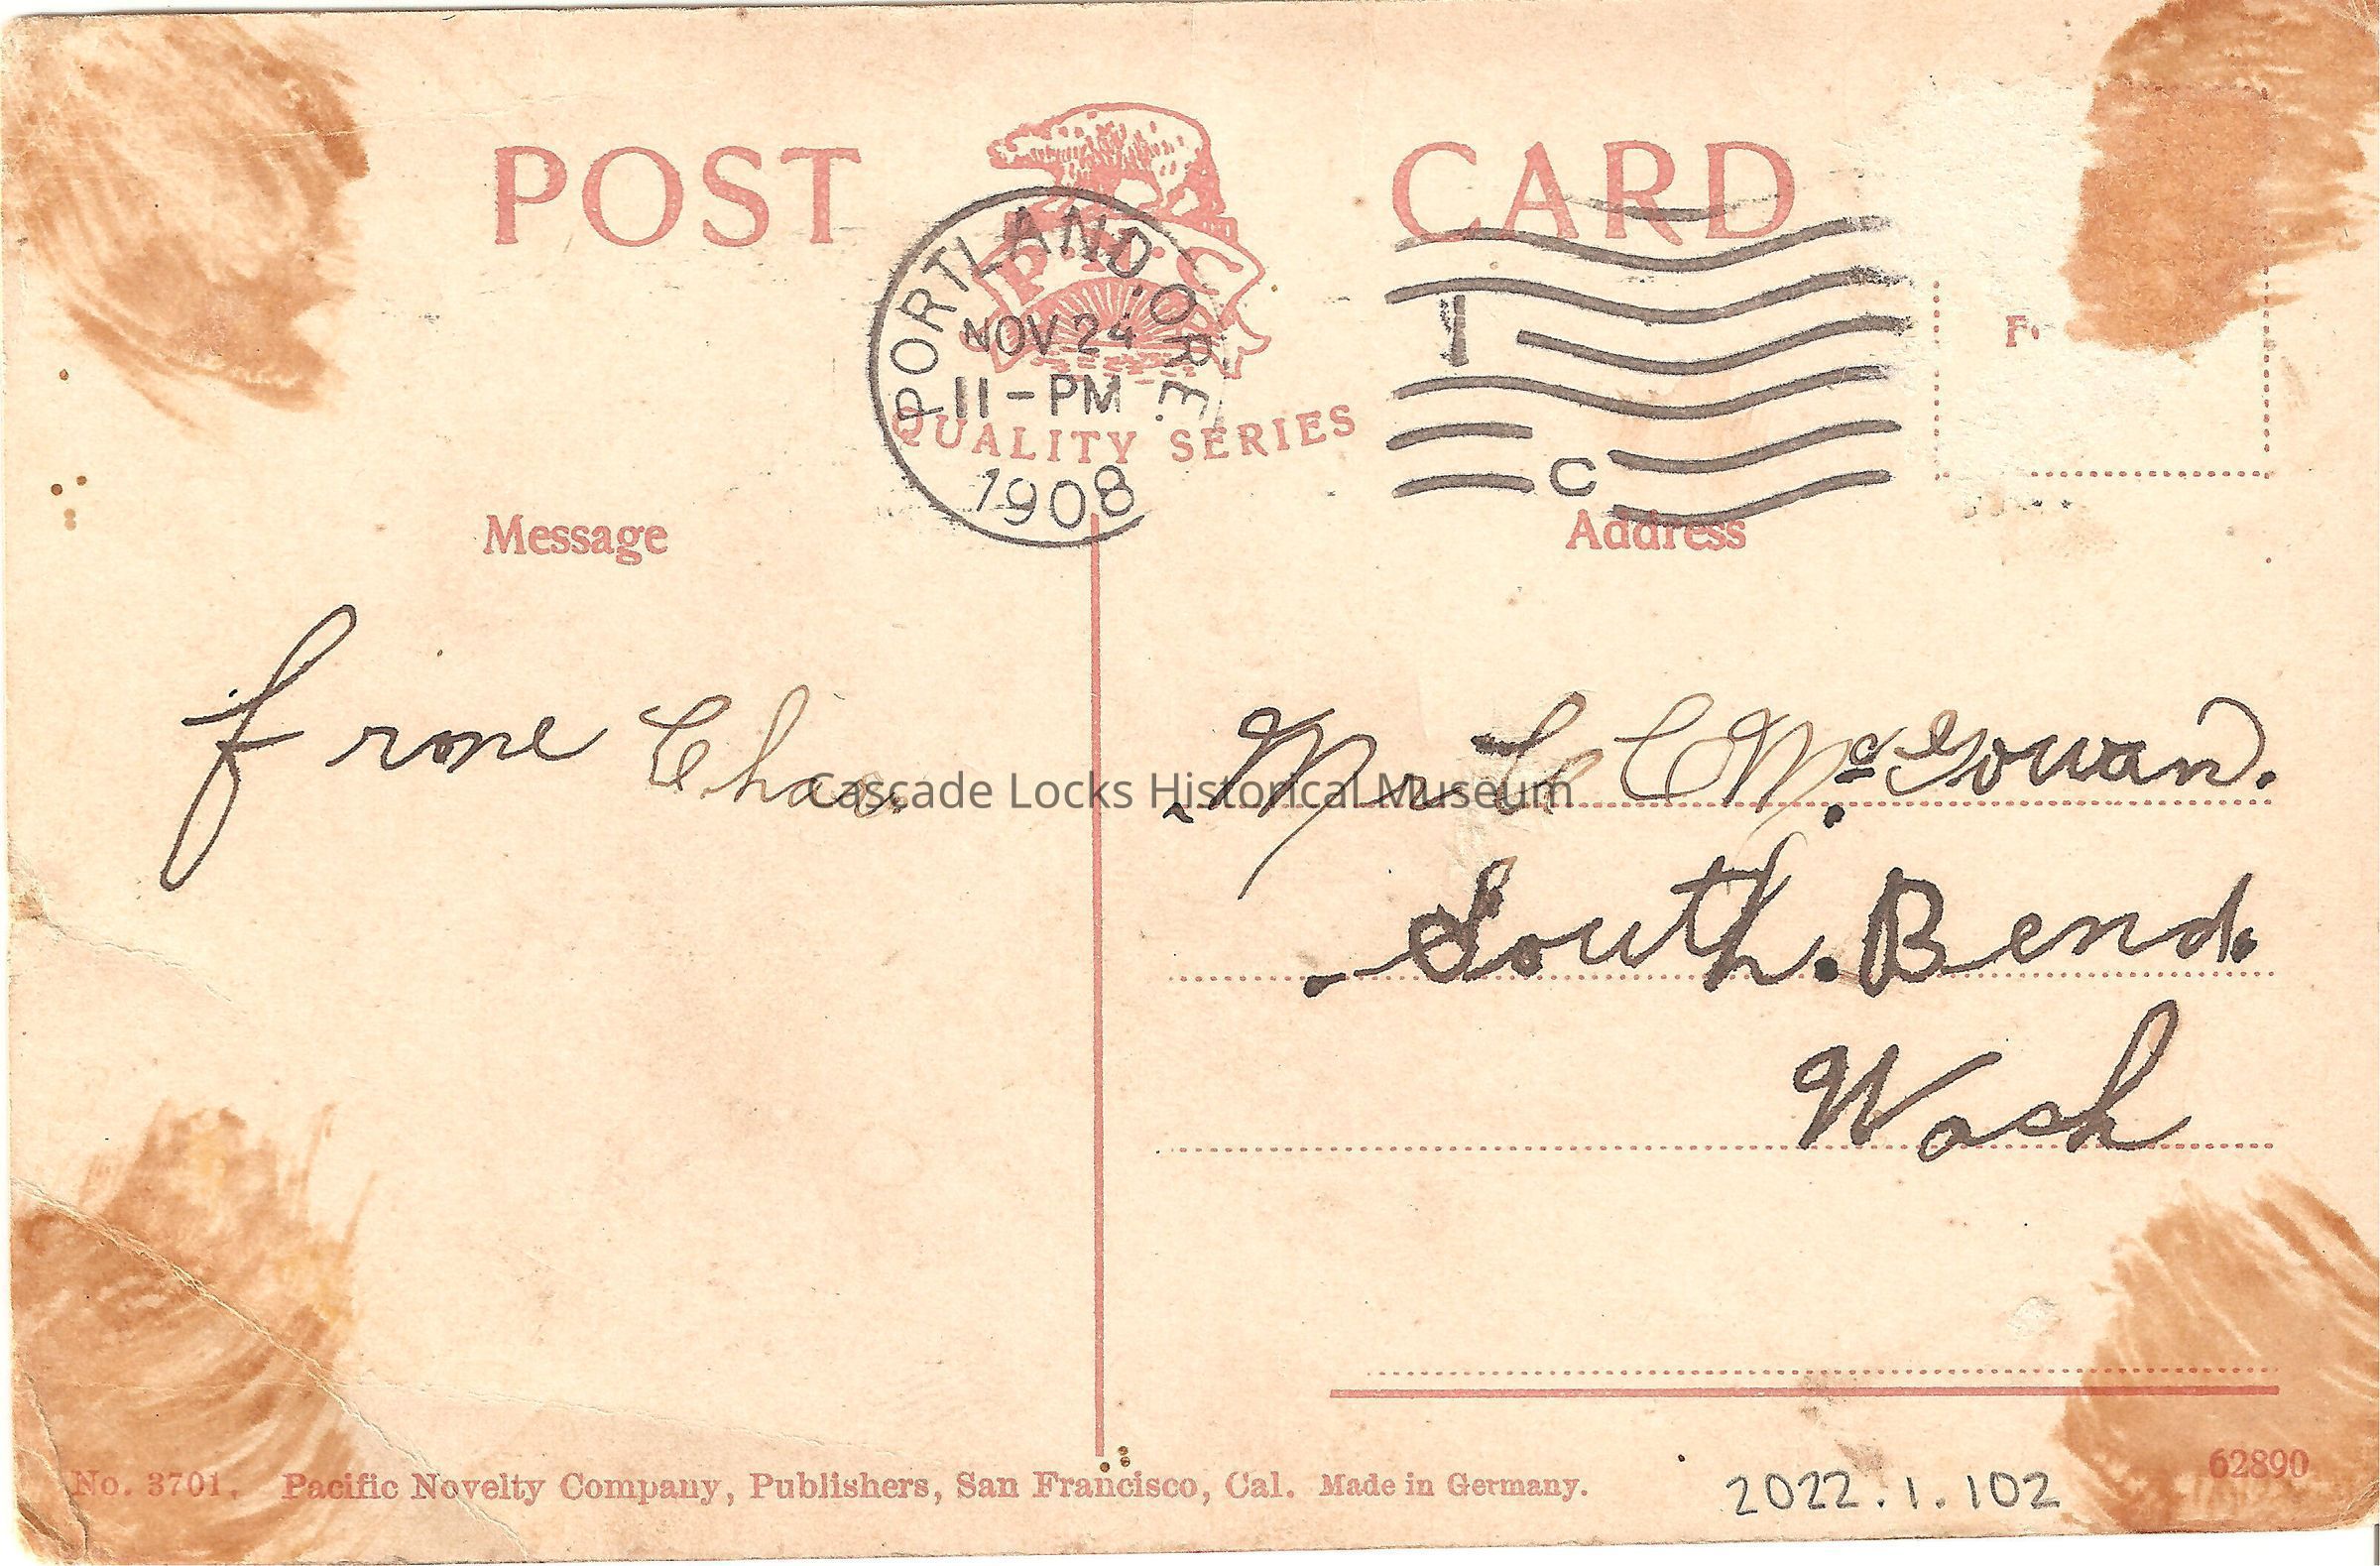 POST CARD
P. N. C.
PORTLAND. ORE.
NOV 24
11-PM
1908
QUALITY SERIES
1
C
Message
Address
frome Chas.
Mr C C McGowan.
South. Bend.
Wash
Cascade Locks Historical Museum
No. 3701. Pacific Novelty Company, Publishers, San Francisco, Cal. Made in Germany.
2022.1.102
62890